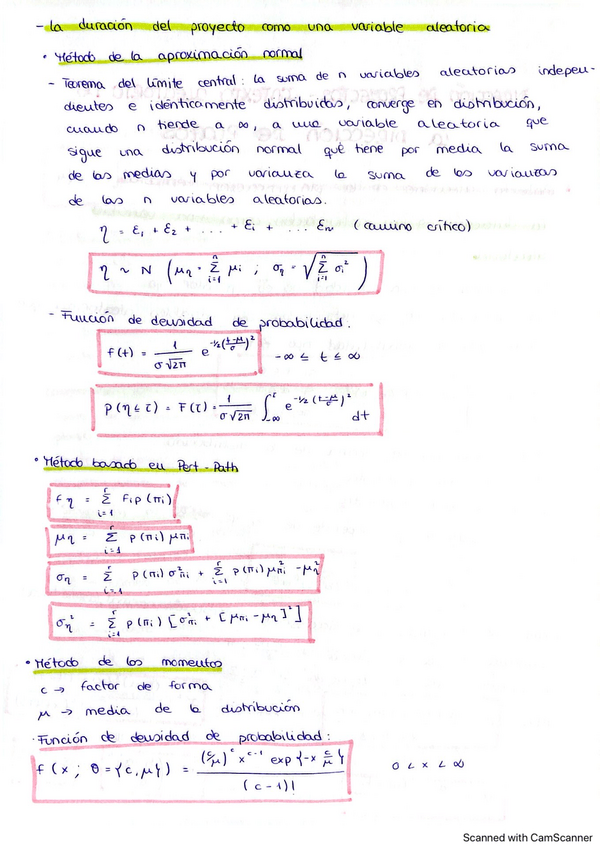 - La duración del proyecto como una variable aleatoria
• Método de la aproximación normal
- Teorema del límite central: la suma de n variables aleatorias indepen-
dientes e idénticamente distribuidas, converge en distribución,
cuando n tiende a ∞, a una variable aleatoria que
sigue una distribución normal que tiene por media la suma
de las medias y por varianza la suma de las varianzas
de las n variables aleatorias.
η = ε₁ + ε₂ + ... + εᵢ + ... εₙ (camino crítico)
η ~ N (μη = Σⁿᵢ₌₁ μᵢ ; ση = √(Σⁿᵢ₌₁ σᵢ²))
- Función de densidad de probabilidad.
f(t) = 1/(σ√2π) e^(-1/2((t-μ)/σ)²) -∞ ≤ t ≤ ∞
P(η ≤ τ) = F(τ) = 1/(σ√2π) ∫_{-∞}^{τ} e^(-1/2((t-μ)/σ)²) dt
• Método basado en Pert-Path
Fη = Σʳᵢ₌₁ Fᵢ p(πᵢ)
μη = Σʳᵢ₌₁ p(πᵢ) μπᵢ
ση = Σʳᵢ₌₁ p(πᵢ) σ²πᵢ + Σʳᵢ₌₁ p(πᵢ) μπᵢ² - μη²
ση² = Σʳᵢ₌₁ p(πᵢ) [σ²πᵢ + [μπᵢ - μη]²]
• Método de los momentos
c → factor de forma
μ → media de la distribución
· Función de densidad de probabilidad:
f(x; θ = {c, μ}) = ((c/μ)^c x^(c-1) exp{-x c/μ})/((c-1)!) 0 < x < ∞
Scanned with CamScanner